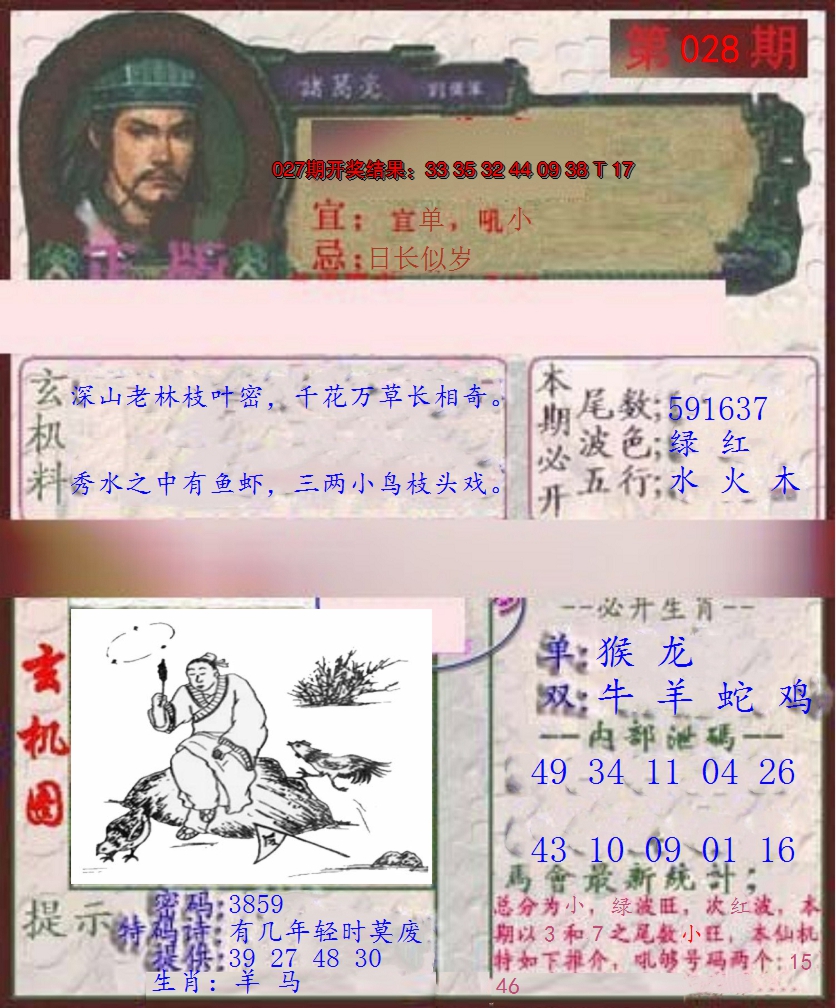 第 028 期
諸葛亮
027期开奖结果：33 35 32 44 09 38 T 17
宜：宜单，吼小
忌：日长似岁
正版
玄机料
深山老林枝叶密，千花万草长相奇。
秀水之中有鱼虾，三两小鸟枝头戏。
本期必开
尾数：591637
波色：绿 红
五行：水 火 木
玄机图
--必开生肖--
单：猴 龙
双：牛 羊 蛇 鸡
一内部泄碼一
49 34 11 04 26
43 10 09 01 16
馬會最新統計；
总分为小，绿波旺，次红波，本
期以3和7之尾数小旺，本仙机
特如下推介，吼够号码两个：15
46
提示
密码：3859
特码诗：有几年轻时莫废
提供：39 27 48 30
生肖：羊 马